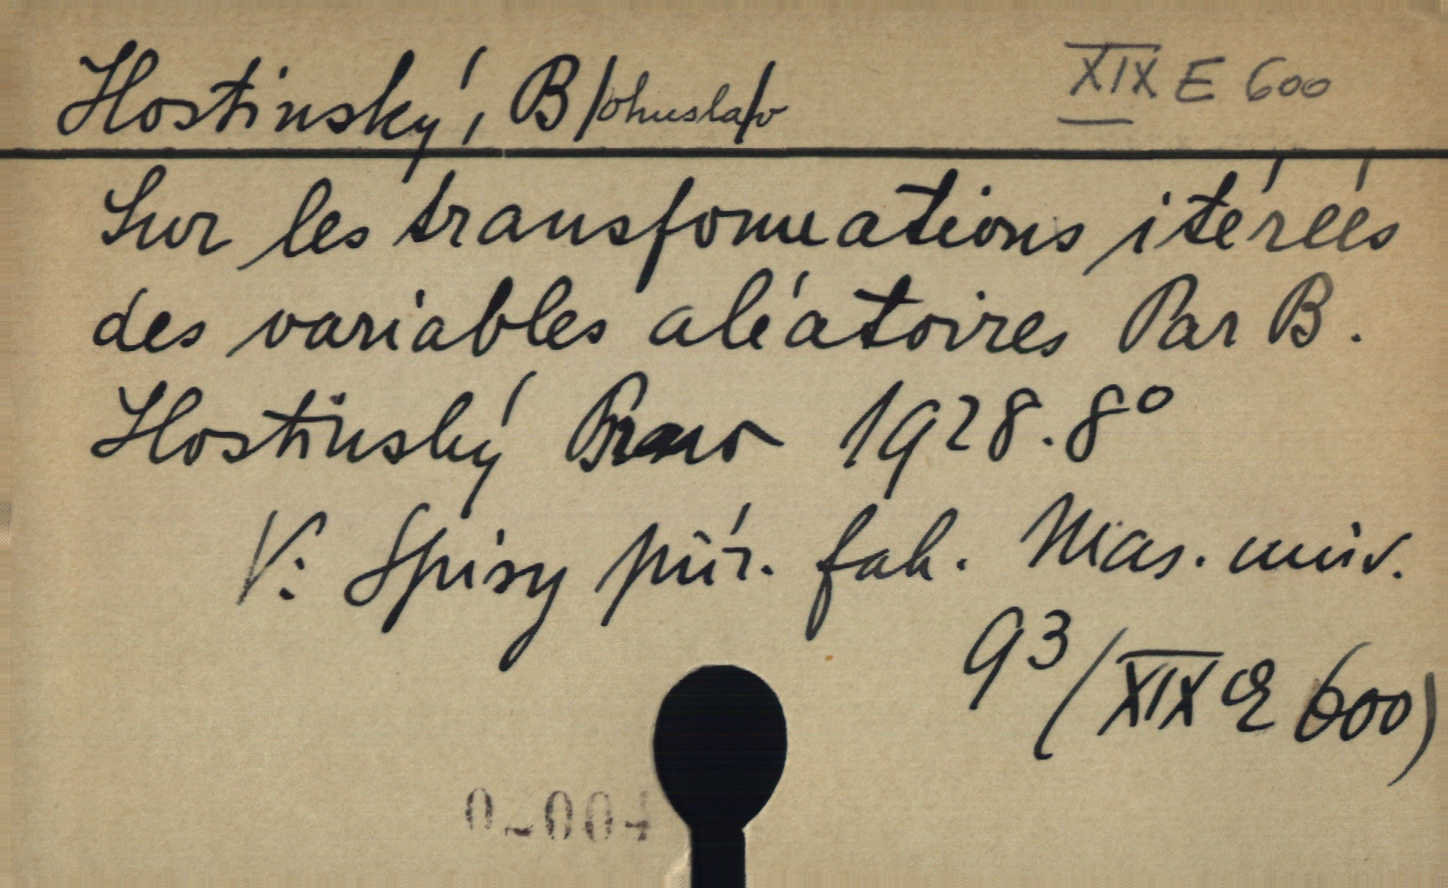 Hostinský, B/ohusla/v XIX E 600
Sur les transformations itérées
des variables aléatoires Par B.
Hostinský Brno 1928. 8°
V: Spisy přír. fak. Mas. univ.
93/(XIX E 600)